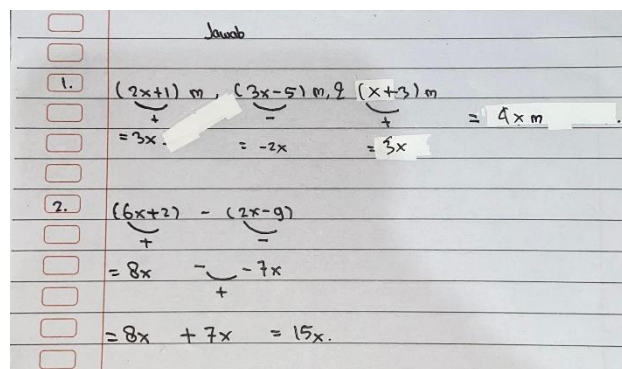 Jawab
1. (2x+1) m, (3x-5) m, & (x+3) m
+ - +
= 3x = -2x = 3x = 4x m.
2. (6x+2) - (2x-9)
+ -
= 8x - -7x
+
= 8x + 7x = 15x.